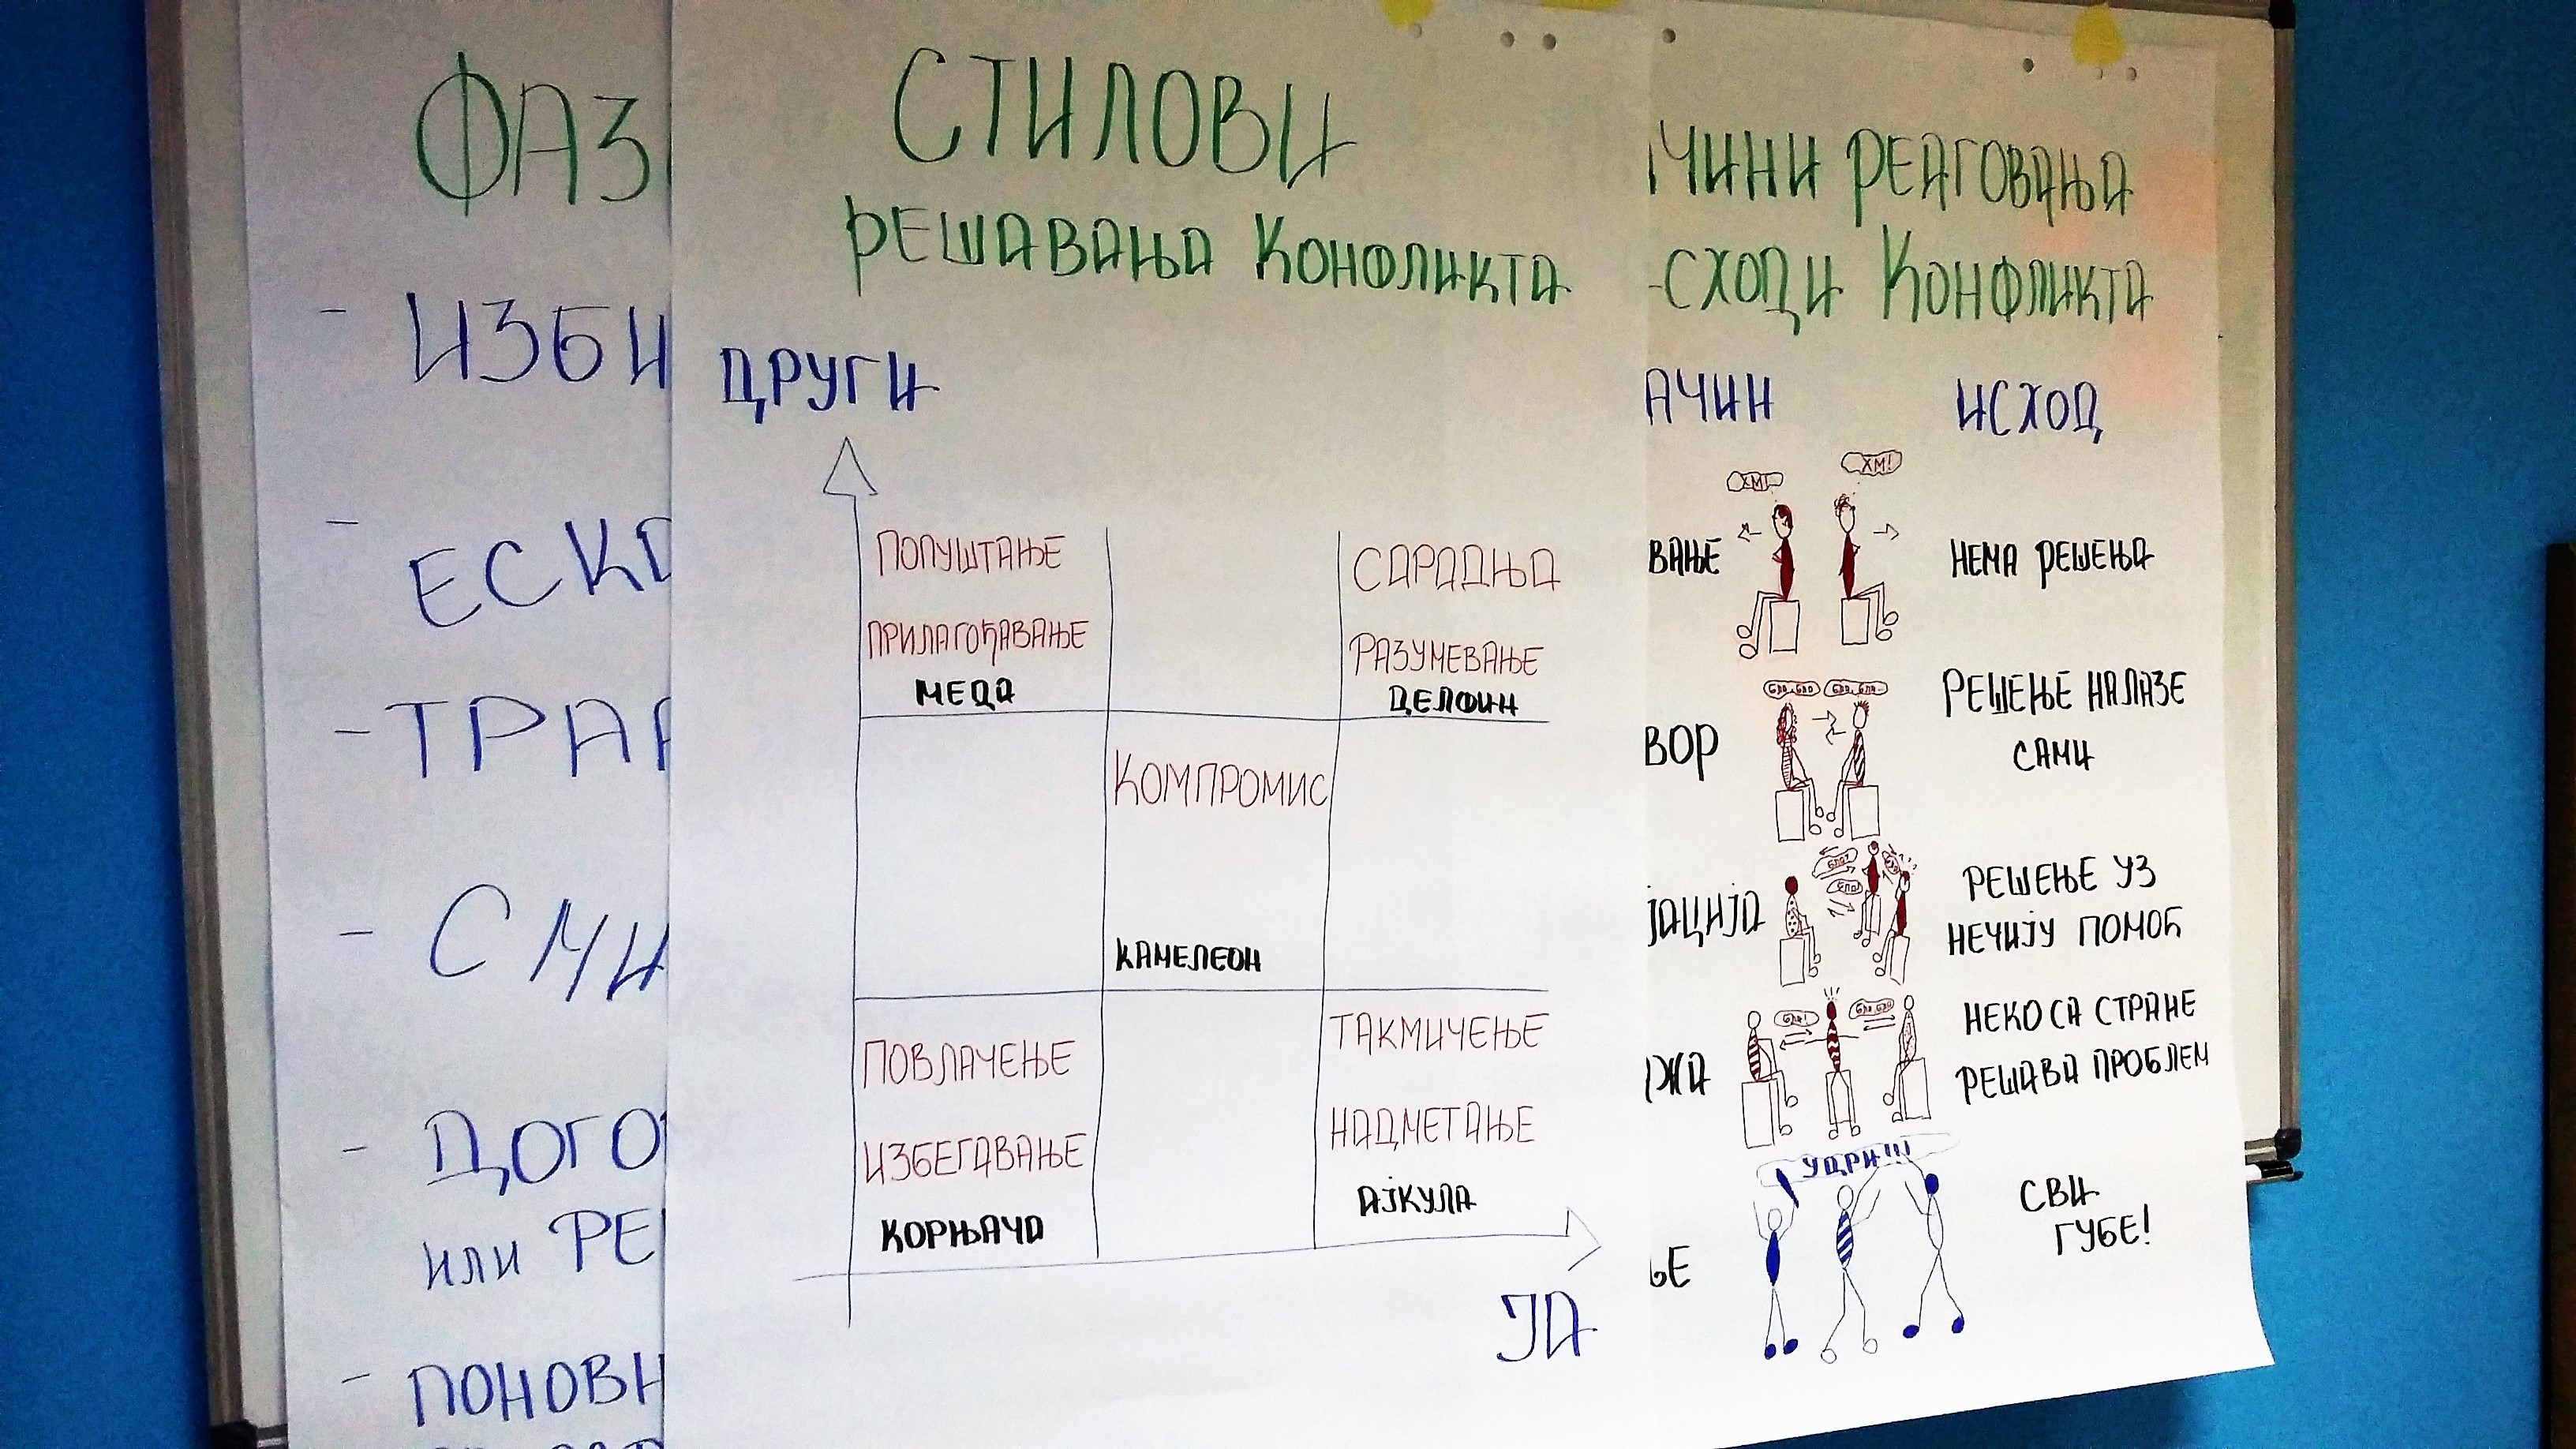 ФАЗ
- ИЗБИ
- ЕСК
- ТРА
- СМИ
- ДОГО
или РЕ
- ПОНОВН
СТИЛОВИ
РЕШАВАЊА КОНФЛИКТА
ДРУГИ
ПОПУШТАЊЕ
ПРИЛАГОЂАВАЊЕ
МЕДА
САРАДЊА
РАЗУМЕВАЊЕ
ДЕЛФИН
КОМПРОМИС
КАМЕЛЕОН
ПОВЛАЧЕЊЕ
ИЗБЕГАВАЊЕ
КОРЊАЧА
ТАКМИЧЕЊЕ
НАДМЕТАЊЕ
АЈКУЛА
ЈА
ЧИНИ РЕАГОВАЊА
СХОДИ КОНФЛИКТА
АЧИН ИСХОД
ХМ! ХМ!
ВАЊЕ НЕМА РЕШЕЊА
БЛА, БЛА БЛА, БЛА
ВОР РЕШЕЊЕ НАЛАЗЕ
САМИ
ЈАЦИЈА РЕШЕЊЕ УЗ
НЕЧИЈУ ПОМОЋ
БЛА! БЛА, БЛА
ЖА НЕКО СА СТРАНЕ
РЕШАВА ПРОБЛЕМ
УДРИ!!!
ЊЕ СВИ
ГУБЕ!